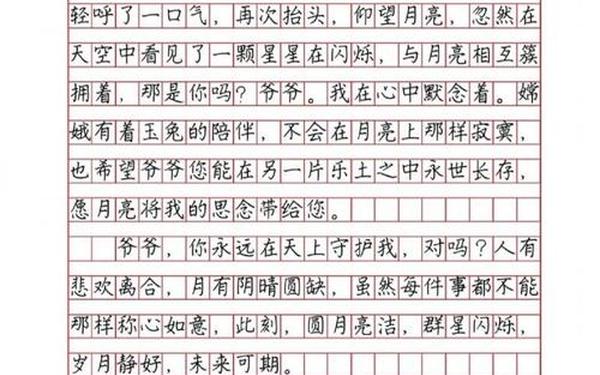 轻呼了一口气，再次抬头，仰望月亮，忽然在
天空中看见了一颗星星在闪烁，与月亮相互簇
拥着，那是你吗？爷爷。我在心中默念着。嫦
娥有着玉兔的陪伴，不会在月亮上那样寂寞，
也希望爷爷您能在另一片乐土之中永世长存，
愿月亮将我的思念带给您。
爷爷，你永远在天上守护我，对吗？人有
悲欢离合，月有阴晴圆缺，虽然每件事都不能
那样称心如意，此刻，圆月亮洁，群星闪烁，
岁月静好，未来可期。